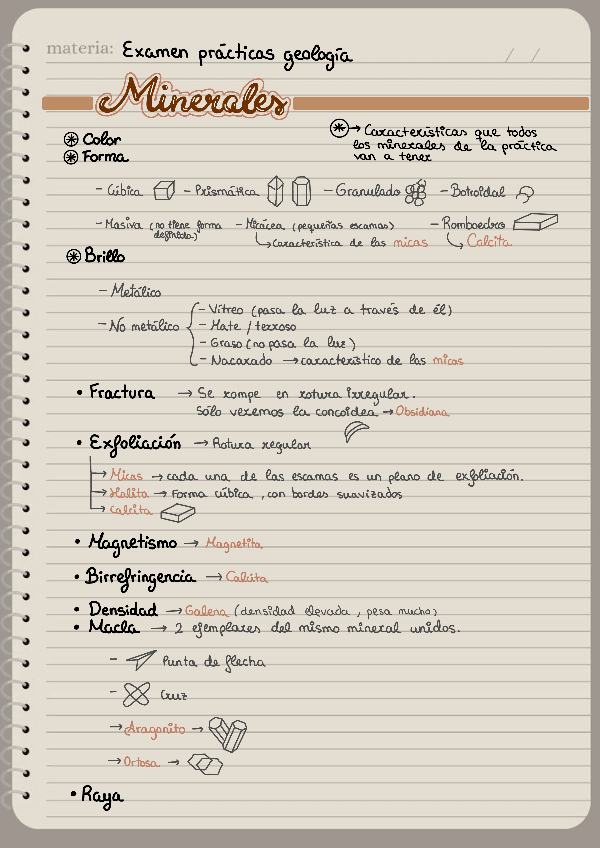 materia: Examen prácticas geología
/ /
Minerales
⊛→ Características que todos
los minerales de la práctica
van a tener
⊛ Color
⊛ Forma
- Cúbica - Prismática - Granulado - Botroidal
- Masiva (no tiene forma definida) - Micácea (pequeñas escamas) - Romboedro
↳ característica de las micas ↳ Calcita
⊛ Brillo
- Metálico
- No metálico
- Vítreo (pasa la luz a través de él)
- Mate / terroso
- Graso (no pasa la luz)
- Nacarado → característico de las micas
• Fractura → Se rompe en rotura irregular.
Sólo veremos la concoidea → Obsidiana
• Exfoliación → Rotura regular
→ Micas → cada una de las escamas es un plano de exfoliación.
→ Halita → Forma cúbica, con bordes suavizados
→ Calcita
• Magnetismo → Magnetita
• Birrefringencia → Calcita
• Densidad → Galena (densidad elevada, pesa mucho)
• Macla → 2 ejemplares del mismo mineral unidos.
- Punta de flecha
- Cruz
→ Aragonito →
→ Ortosa →
• Raya